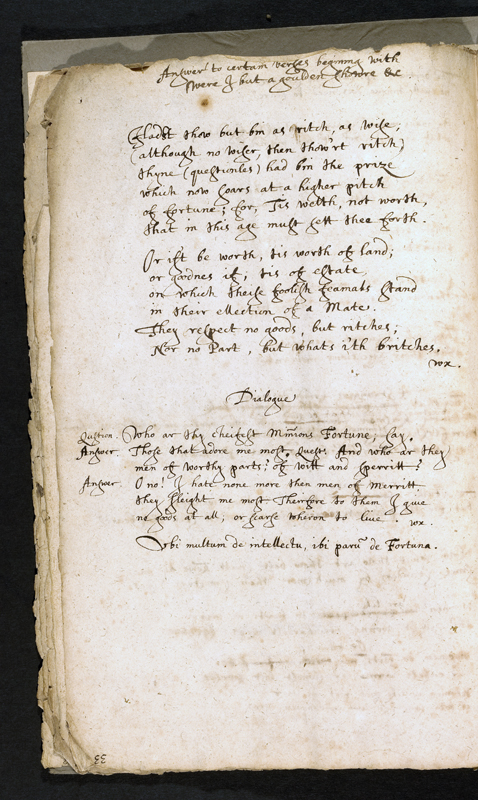 Answer to certain verses begining with
Were I but a goulden Showre &c
Hadst thou but bin as ritch, as wise,
(although no wiser, then thow'rt ritch)
thyne (questionles) had bin the prize
which now soars at a higher pitch
of fortune; for, Tis welth, not worth,
that in this age must sett thee forth.
Or if't be worth, tis worth of land;
or goodnes if, tis of estate
on which theise foolish feamals stand
in their ellection of a Mate.
They respect no goods, but ritches;
Nor no Part, but whats i'th britches.
wx.
Dialogue
Question. Who ar thy cheifest Minions Fortune, say.
Answer. Those that adore me most. Quest: And who ar they
men of worthy parts? of witt and sperritt?
Answer O no! I hate none more then men of Merritt
they sleight me most Therfore to them I give
no goods at all, or scarse wheron to live. wx
Ubi multum de intellectu, ibi parū de Fortuna.